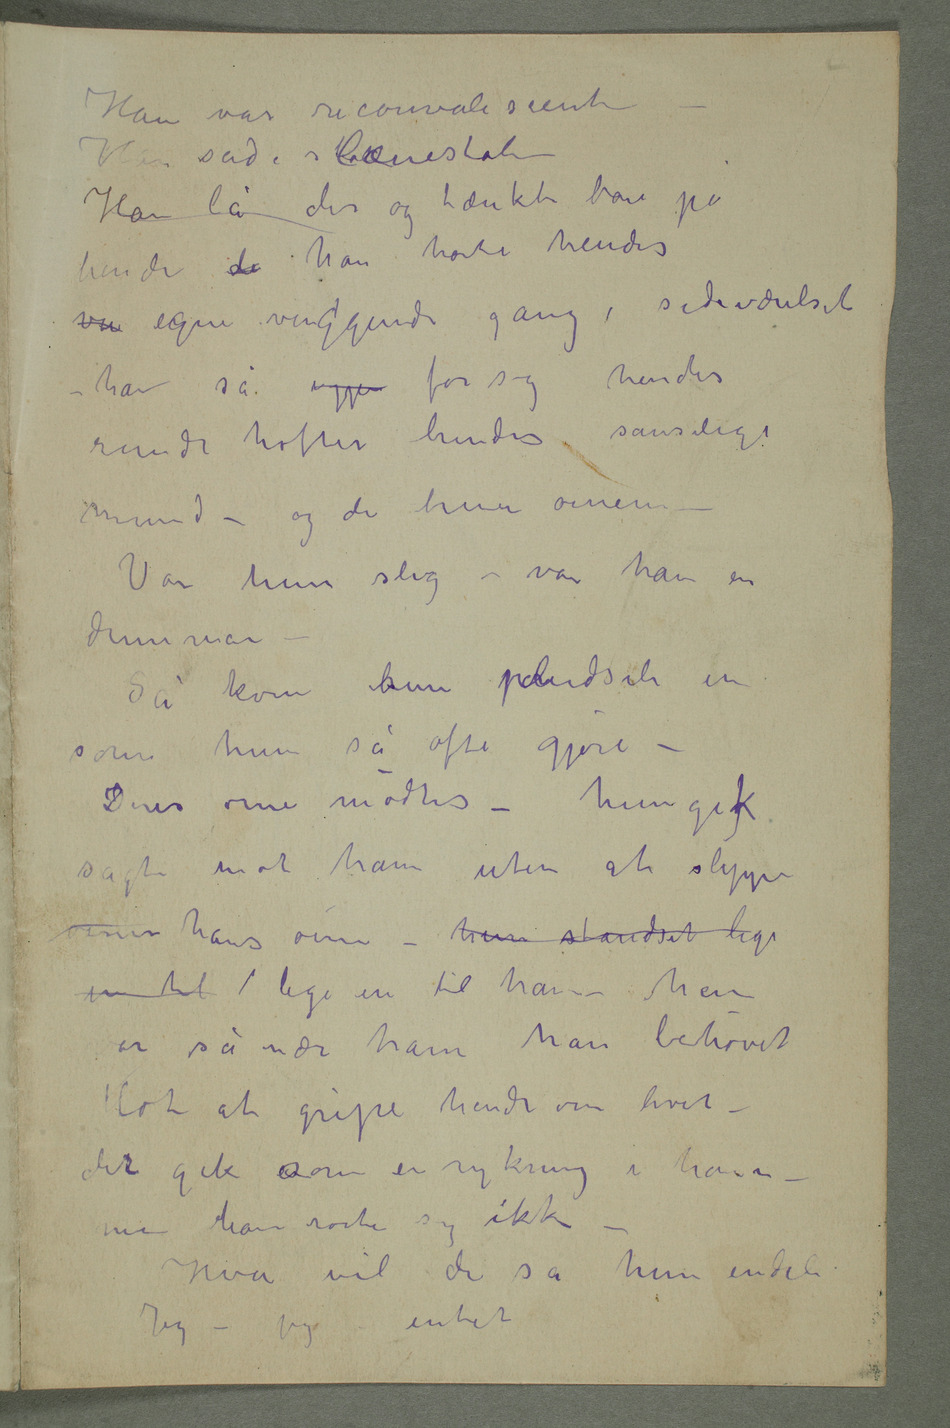 Han var reconvalescent –
Han sad i slænestolen
Han lå der og tænkte bare på
hende de han hørte hendes
var egne vuggende gang i sideværelset
– han så igjen for sig hendes
runde hofter hendes sanselige
mund – og de brune øinene –
Var hun slig – var han en
drømmer –
Så kom hun pludseli in
som hun så ofte gjøre –
Deres øine mødtes – hun gik
sagte mot ham uten at slippe
øinene hans øine – hun standset lige
in til / lige in til ham – hun
er så nær ham han behøvet
blot at gripe hende om livet –
det gik som en rykning i ham –
men han rørte sig ikke –
Hva vil de sa hun endeli
Jeg – jeg – intet